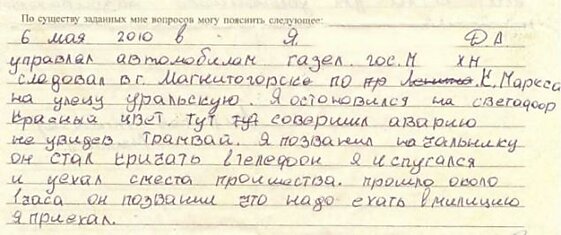 По существу заданных мне вопросов могу пояснить следующее:
6 мая 2010 в Я. Д А
управлял автомобилам газел. гос. N хн
следовал в г. Магнитогорске по пр Ленина К. Маркса
на улецу уральскую. Я остановился на светафоор
красный цвет тут тут совершил аварию
не увидев трамвай. Я позванил начальнику
он стал кричать в телефон я испугался
и уехал с места проишества. прошло около
1 часа он позванил что надо ехать в милицию
я приехал.